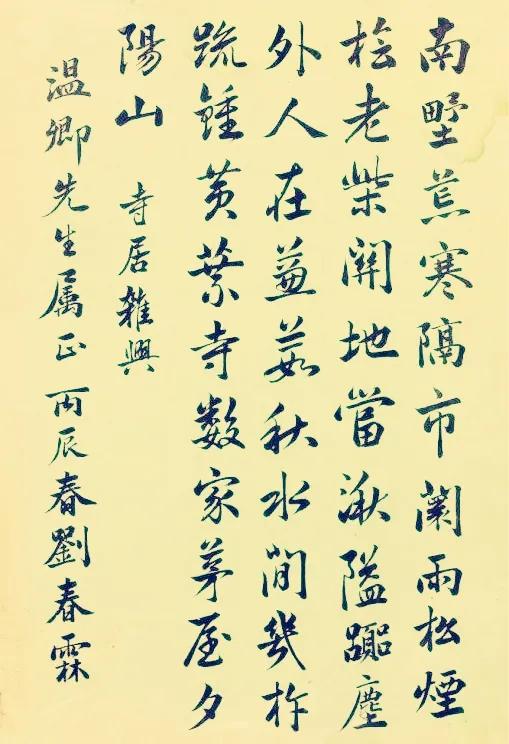 南墅荒寒隔市闤雨松煙
桧老柴關地當湫隘囂塵
外人在蒹葭秋水間幾杵
疏鍾黄葉寺數家茅屋夕
陽山 寺居雜興
温卿先生属正 丙辰春劉春霖